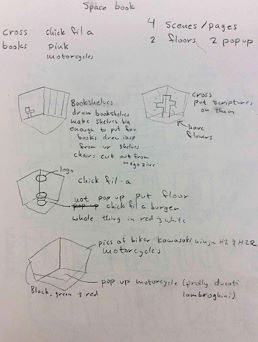 Space book
cross chick fil a
books pink
motorcycles
4 Scenes/pages
2 floors, 2 popup
Bookshelves
draw bookshelves
make shelves big
enough to put for
books draw
from ur shelves
chairs cut out from
magazine
cross
put scriptures
on them
have
flours
logo
chick fil-a
not pop up put flour
pop up chick fil a burger
whole thing in red & white
pics of biker Kawasaki ninja H2 & H2R
motorcycles
pop up motorcycle (prolly ducati
lambroghini)
Black, green & red